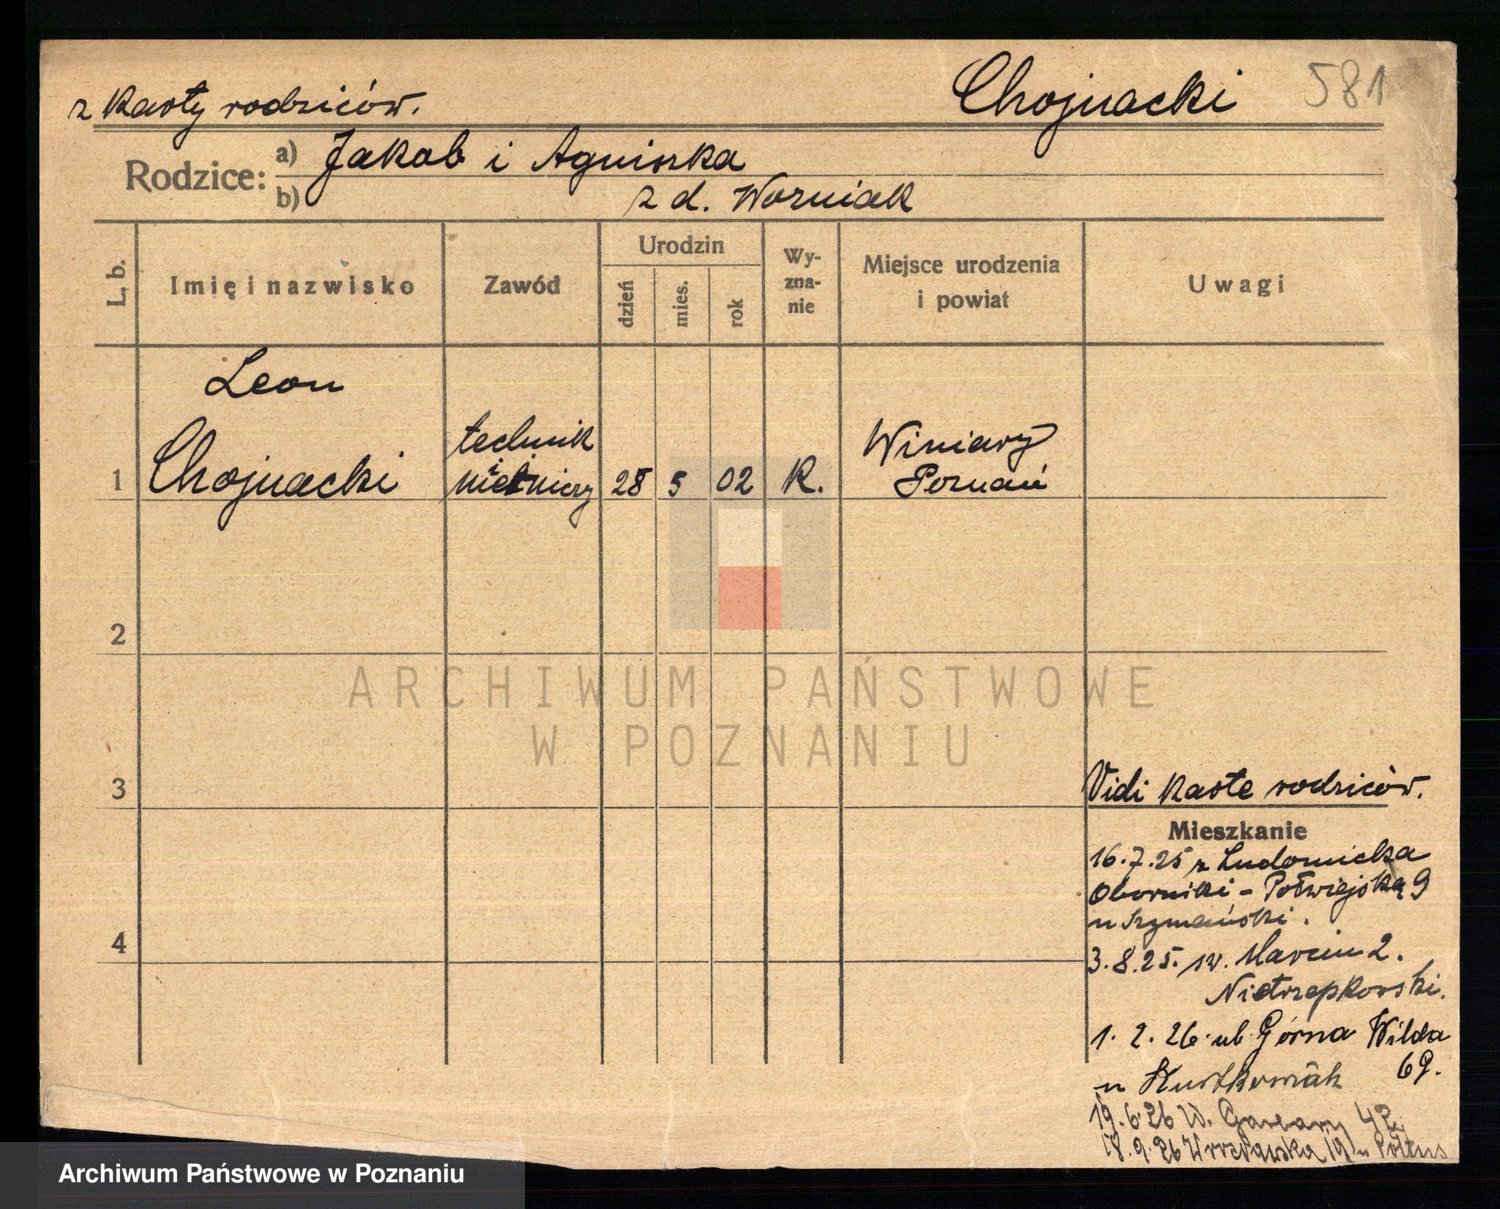 z karty rodziców.
Chojnacki
581
Rodzice:
a) Jakob i Agniszka
b) z d. Wozniak
L. b.
Imię i nazwisko
Zawód
Urodzin
dzień
mies.
rok
Wy-
zna-
nie
Miejsce urodzenia
i powiat
Uwagi
1
Leon
Chojnacki
technik
28
5
02
R.
Winiary
Poznań
2
3
4
Vidi karte rodziców.
Mieszkanie
16.7.25 z
Oborniki - Półwiejska 9
u Szymański.
3.8.25. św. Marcin 2.
Nietrzepkowski.
1. 2. 26. ul. Górna Wilda
69.
u
19.6.26 W. Garbary 42
18.9.26 Wrocławska 19
ARCHIWUM PAŃSTWOWE
W POZNANIU
Archiwum Państwowe w Poznaniu